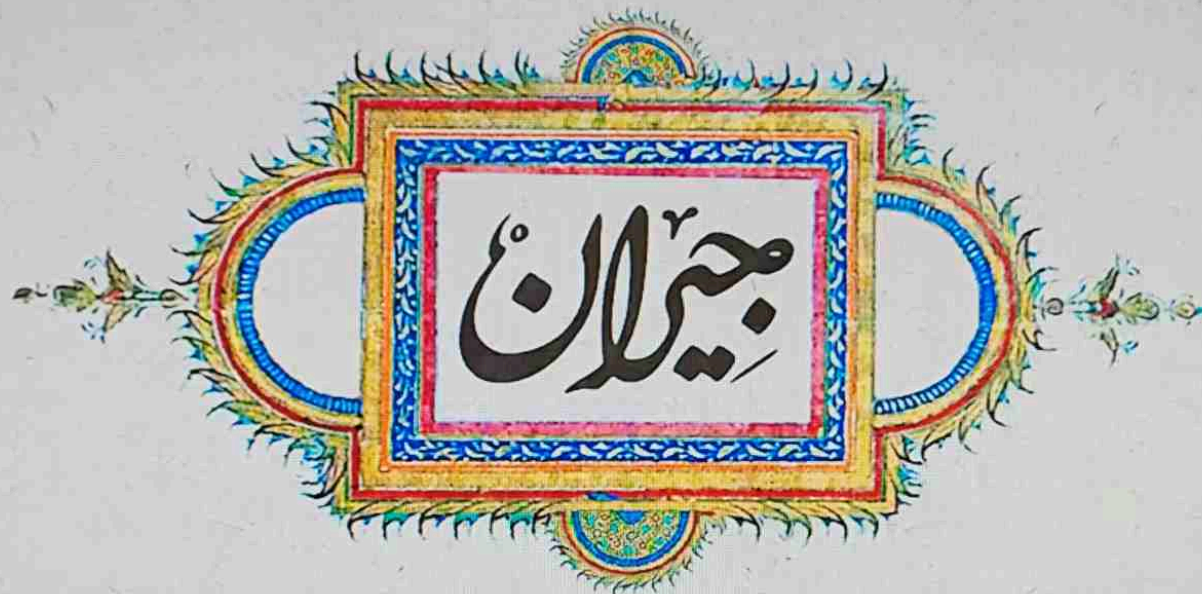 جیران